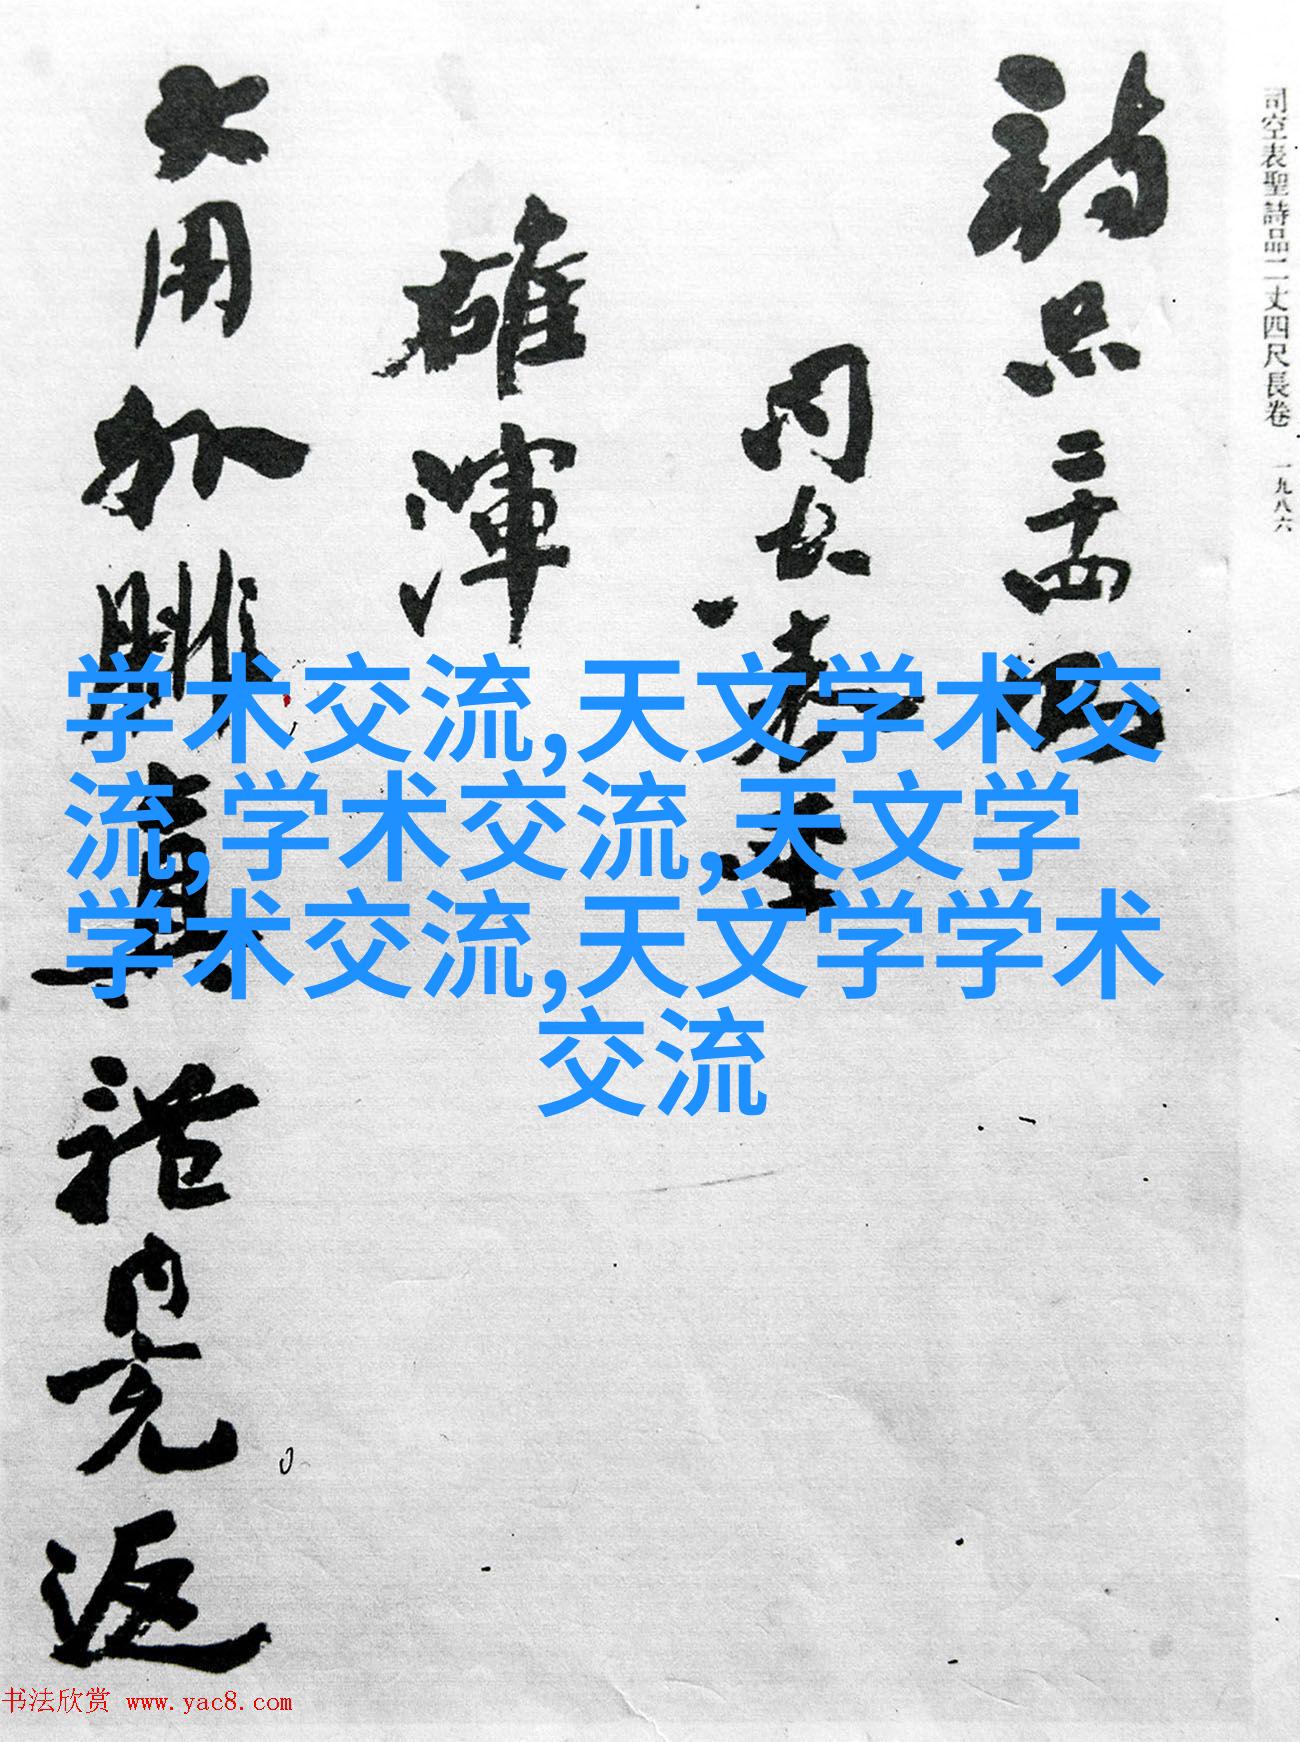 司空表聖詩品二丈四尺長卷 一九八六
詩品二十四
司空表聖
雄渾
大用外腓真體內充返
学术交流,天文学术交
流,学术交流,天文学
学术交流,天文学学术
交流
书法欣赏 www.yac8.com